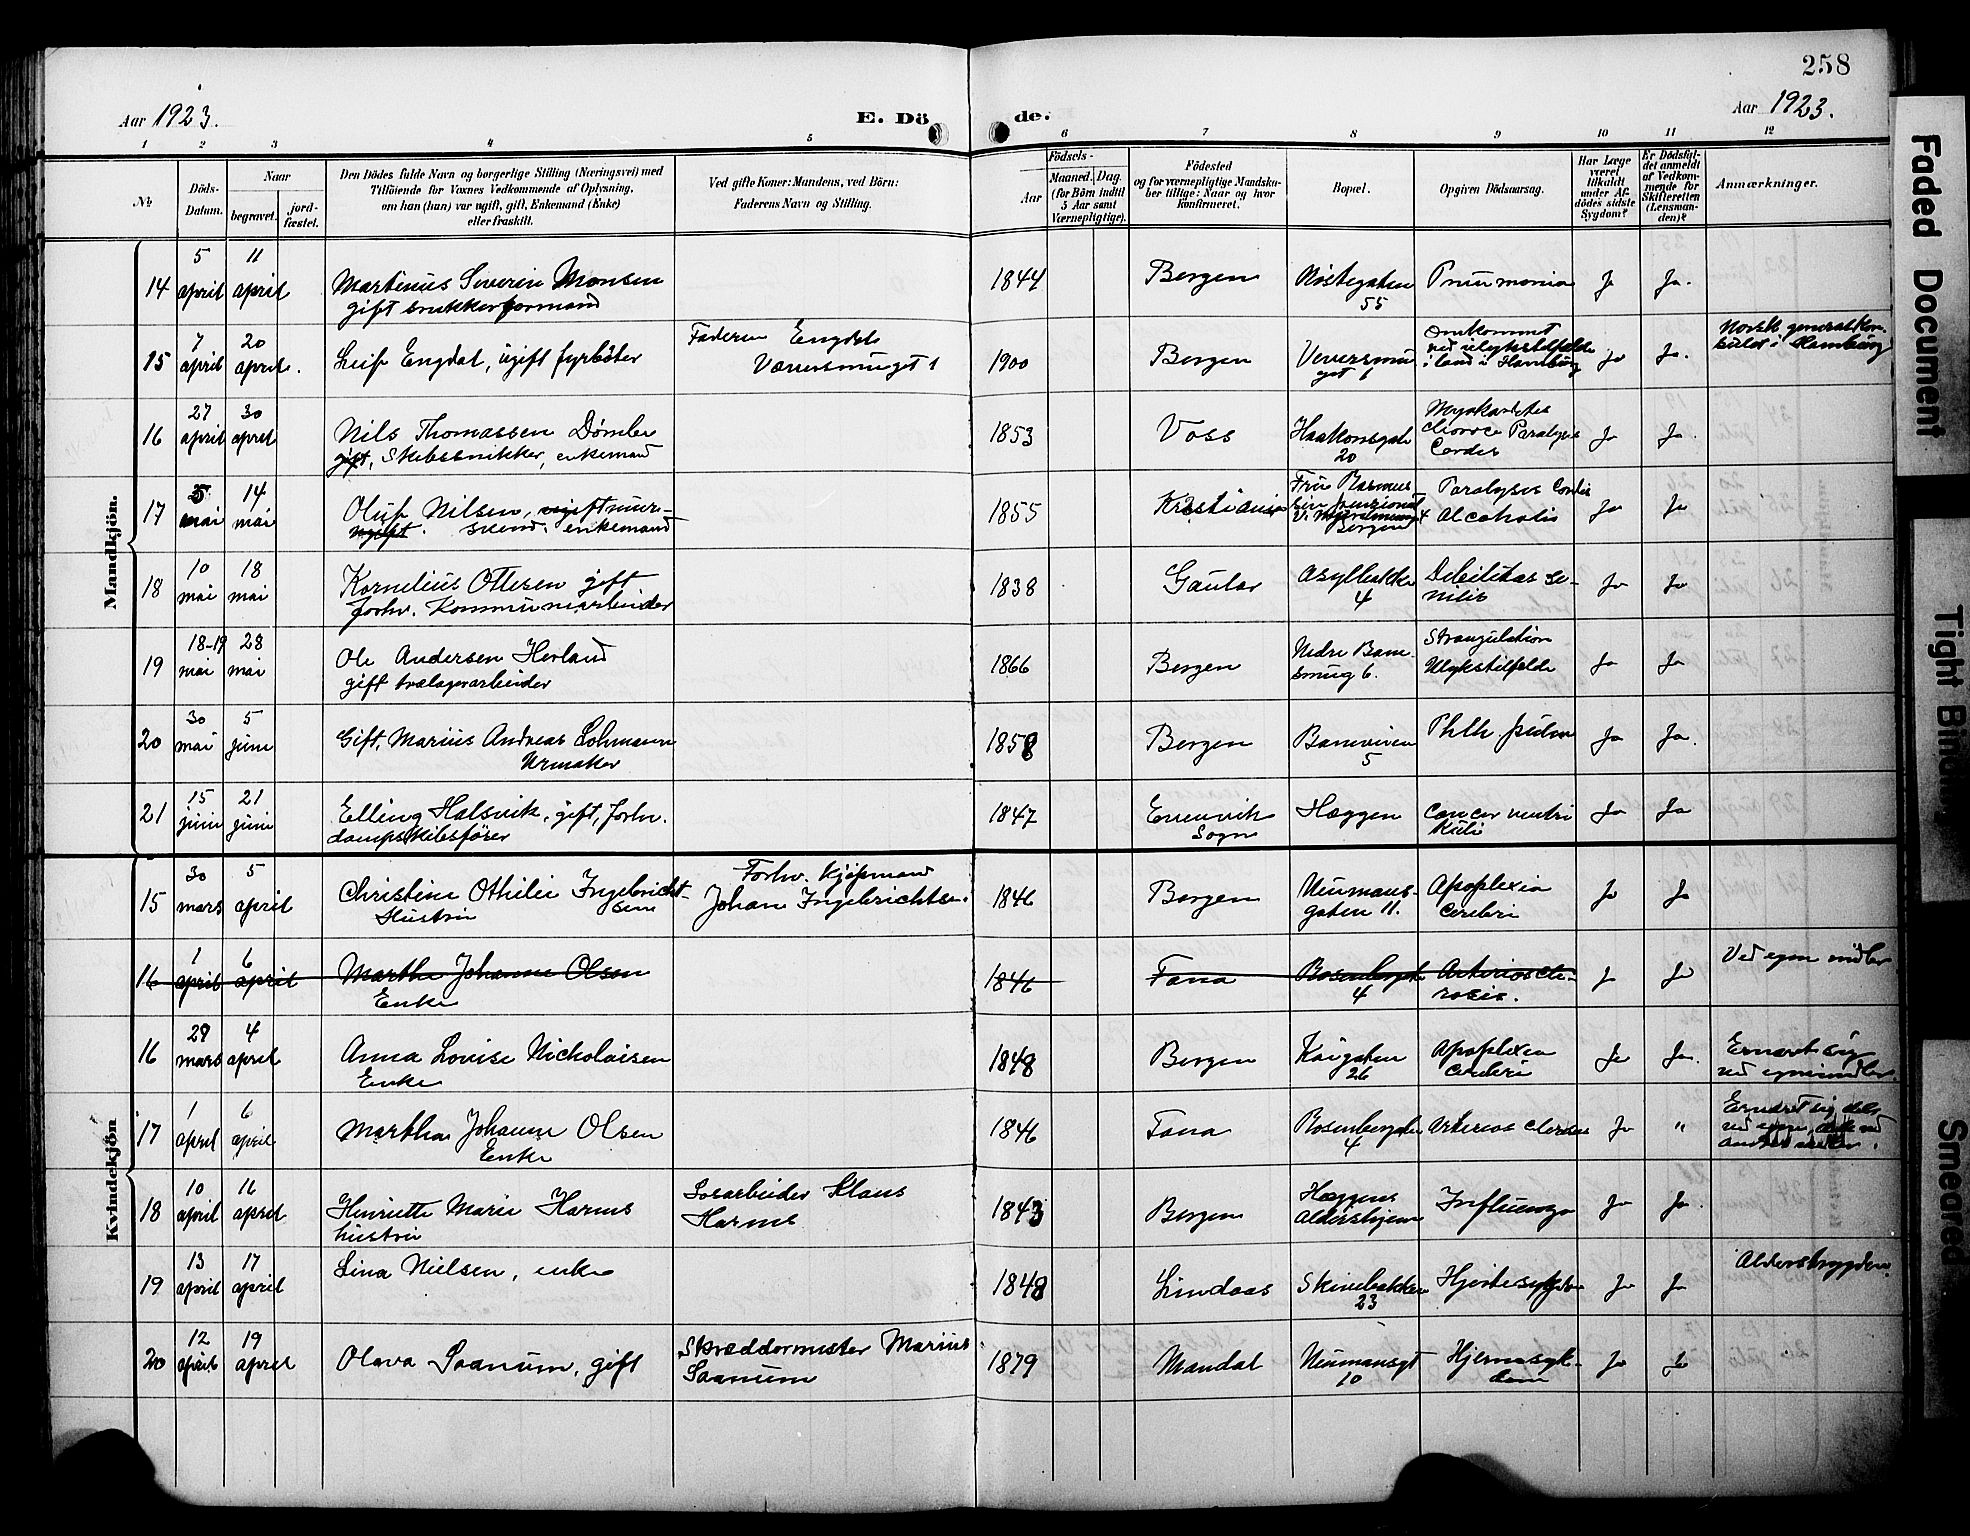 258
Aar 1923.
E. Dö de.
Aar 1923.
1 2 3 4 5 6 7 8 9 10 11 12
No
Döds-Datum.
Naar
begravet.
jord-fæstet.
Den Dödes fulde Navn og borgerlige Stilling (Næringsvei) med
Tilföiende for Voxnes Vedkommende af Oplysning,
om han (hun) var ugift, gift, Enkemand (Enke)
eller fraskilt.
Ved gifte Koner: Mandens, ved Börn:
Faderens Navn og Stilling.
Födsels-
Aar
Maaned. Dag.
(for Börn indtil
5 Aar samt
Værnepligtige).
Födested
og for værnepligtige Mandska-
ber tillige: Naar og hvor
konfirmeret.
Bopæl.
Opgiven Dödsaarsag.
Har Læge
været
tilkaldt
under Af-
dödes sidste
Sygdom?
Er Dödsfal-
det anmeldt
af Vedkom-
mende for
Skifteretten
(Lensman-
den)?
Anmærkninger.
Mandkjön.
14 5 april 11 april Martinus Severin Monsen
gift snekkerformand
1844 Bergen Nöstegaten 55 Pneumonia Ja Ja.
15 7 april 20 april. Leif Engdal, ugift fyrböter
Faderen Engdal
Væversmuget 1
1900 Bergen Veversmu-
get 1
Omkommet
ved ulykkestilfælde
i land i Hamburg
Ja Ja.
Norsk generalkon-
sulat i Hamburg
16 27 april 30 april Nils Thomassen Dömbe
gift, Skibssnikker, enkemand
1853 Voss Haakonsgate 20
Paralysis
Cordis
Ja Ja.
17 5 mai 14 mai Oluf Nilsen, ugift muur-
ugift. svend. enkemand
1855 Kristiania Fru Rasmus
Bergen
Paralysis Cordis
Alcoholis
Ja Ja
18 10 mai 18 mai Kornelius Ottesen gift
forhv. Kommunearbeider
1838 Gaular Asylbakke 4 Debilitas se-
nilis
Ja Ja
19 18-19 mai 28 mai Ole Andersen Herland
gift trælagerarbeider
1866 Bergen Nedre Bane-
smug 6.
Strangulation
Ulykstilfelde
Ja Ja
20 30 mai 5 juni Gift, Marius Andreas Lohmann
Urmaker
1858 Bergen Baneveien 5 Phth. pulm Ja Ja.
21 15 juni 21 juni Elling Halsvik, gift, forhv.
dampskibsförer
1847 Evenvik
Sogn
Hæggen Cancer ventri
kuli
Ja Ja
Kvindekjön
15 30 mars 5 april Christine Othilie Ingebricht-
sen
Hustru
Forhv. Kjöpmand
Johan Ingebrichtsen
1846 Bergen Neumans-
gaten 11.
Apoplexia
Cerebri
Ja Ja
16 1 april 6 april Martha Johanne Olsen
Enke
1846 Fana Rosenbergsgt 4 Arterioscle-
rosis.
Ja Ja Ved egne midler
16 29 mars 4 april Anna Lovise Nicholaisen
Enke
1848 Bergen Kaigaten 26 Apoplexia
Cerebri
Ja Ja. Ernæret sig
ved egne midler.
17 1 april 6 april Martha Johanne Olsen
Enke
1846 Fana Rosenbergsgt 4 Arterios clerose Ja "
Ernæret sig dels
ved egne, dels ved
andres midler.
18 10 april 16 april Henriette Marie Harms
hustru
Losarbeider Klaus
Harms
1843 Bergen Hæggens
Aldershjem
Influenza Ja Ja.
19 13 april 17 april Lina Nielsen, enke
1848 Lindaas Skivebakken 23 Hjertesygdom Ja Ja Alderstrygden.
20 12 april 19 april Olava Saanum, gift
Skræddermester Marius
Saanum
1879 Mandal Neumansgt 10 Hjernesyk-
dom
Ja Ja
Faded Document
Tight Binding
Smeared